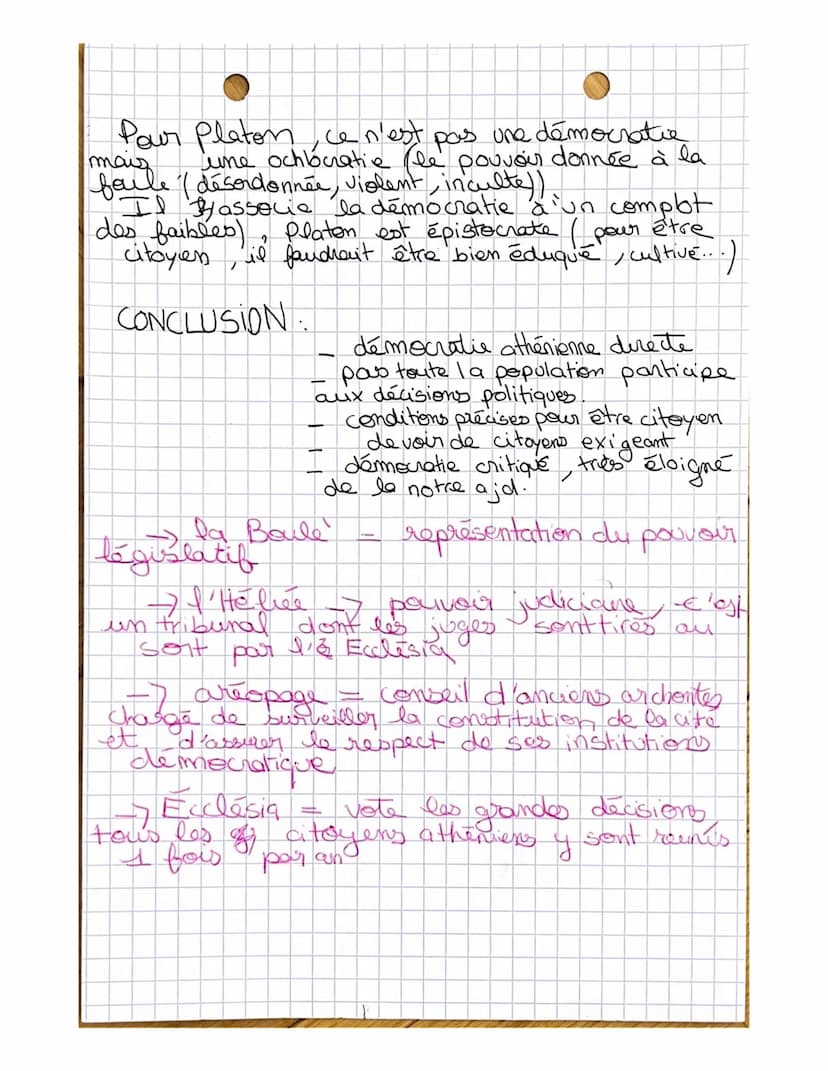 Pour Platon, ce n'est pas une démocratie
mais une ochlocratie (le pouvoir donnée à la
foule (désordonnée, violent, inculte))
Il associe la démocratie à un complot
des faibles), Platon est épistocrate ( pour être
citoyen, il faudrait être bien éduqué, cultivé...)
CONCLUSION :
- démocratie athénienne directe
- pas toute la population participe
aux décisions politiques.
- conditions précises pour être citoyen
- devoir de citoyens exigeant
- démocratie critiqué, très éloigné
de la notre ajd.
-> la Boulé = représentation du pouvoir
législatif
-> l'Héliée -> pouvoir judiciaire, c'est
un tribunal dont les juges sont tirés au
sort par l' Ecclésia
-> aréopage = conseil d'anciens archontes
chargé de surveiller la constitution de la cité
et d'assurer le respect de ses institutions
démocratique
-> Ecclésia = vote les grandes décisions
tous les citoyens athéniens y sont réunis
1 fois par an